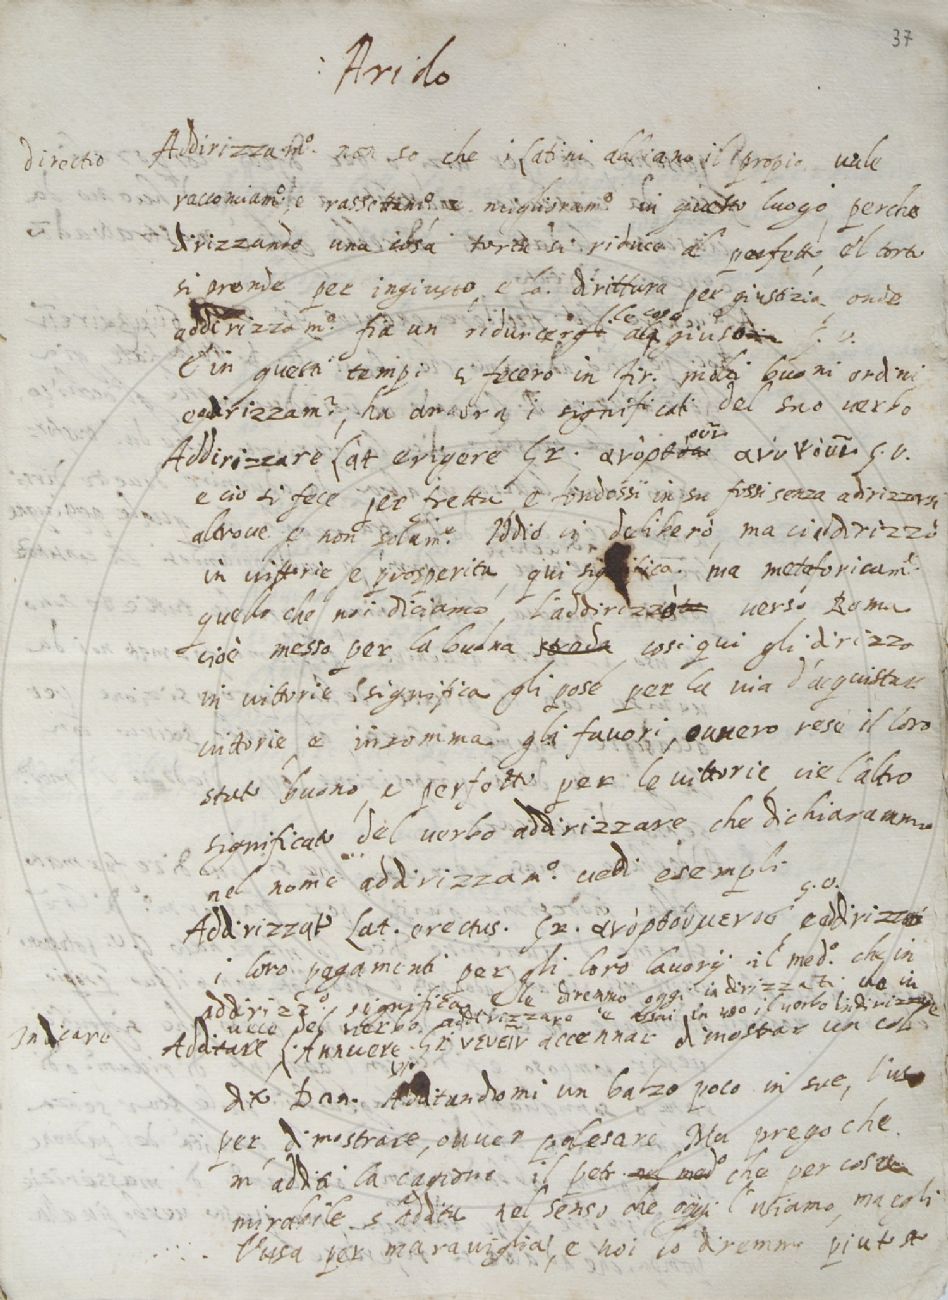 37
Arido
directio
Addirizzam.º non so che i Latini abbiano il propio vale
racconciam.º, e rassettam.º e miglioram.º in questo luogo, perche
dirizzando una cosa torta si riduce al perfetto, e'l torto
si prende per ingiusto, e la dirittura per giustizia, onde
addirizzam.º fia un ridurre le cose al giusto G. V.
E in questi tempi si fecero in Fir. molti buoni ordini
e dirizzam.ti, ha ancora i significati del suo verbo
Addirizzare Lat erigere Gr. G. V.
e cio si fece per fretta e fondossi in su fossi senza adrizzarsi
altrove e non solam.e Iddio ci deliberò, ma ci addirizzò
in vittorie e prosperità, qui significa ma metaforicam.e
quello che noi diciamo l'addirizzò verso Roma
cioè messo per la buona strada così qui gli dirizzò
in vittorie significa gli pose per la via d'acquistar
vittorie, e insomma gli favorì, ovvero rese il loro
stato buono, e perfetto per le vittorie, vie l'altro
significato del verbo addirizzare che dichiarammo
nel nome addirizzam.º vedi esempli
Addirizzato Lat. erectus. Gr. G. V.
i loro pagamenti per gli loro lavorij il med.º che in
addirizam.º significa, e le diremmo oggi indirizzati
vece del verbo addirizzare è assai in uso il verbo Indirizzare
Indicare
Additare L. Annuere Gr νεύειν accennar dimostrar un col
dito Dan. Additandomi un balzo poco in sue, l'uso
per dimostrare, ovver palesare Ma prego che
m'additi la cagione il petr nel med.º che per cosa
mirabile s'addita nel senso che oggi l'usiamo, ma egli
l'usa per maraviglia, e noi lo diremmo piutosto